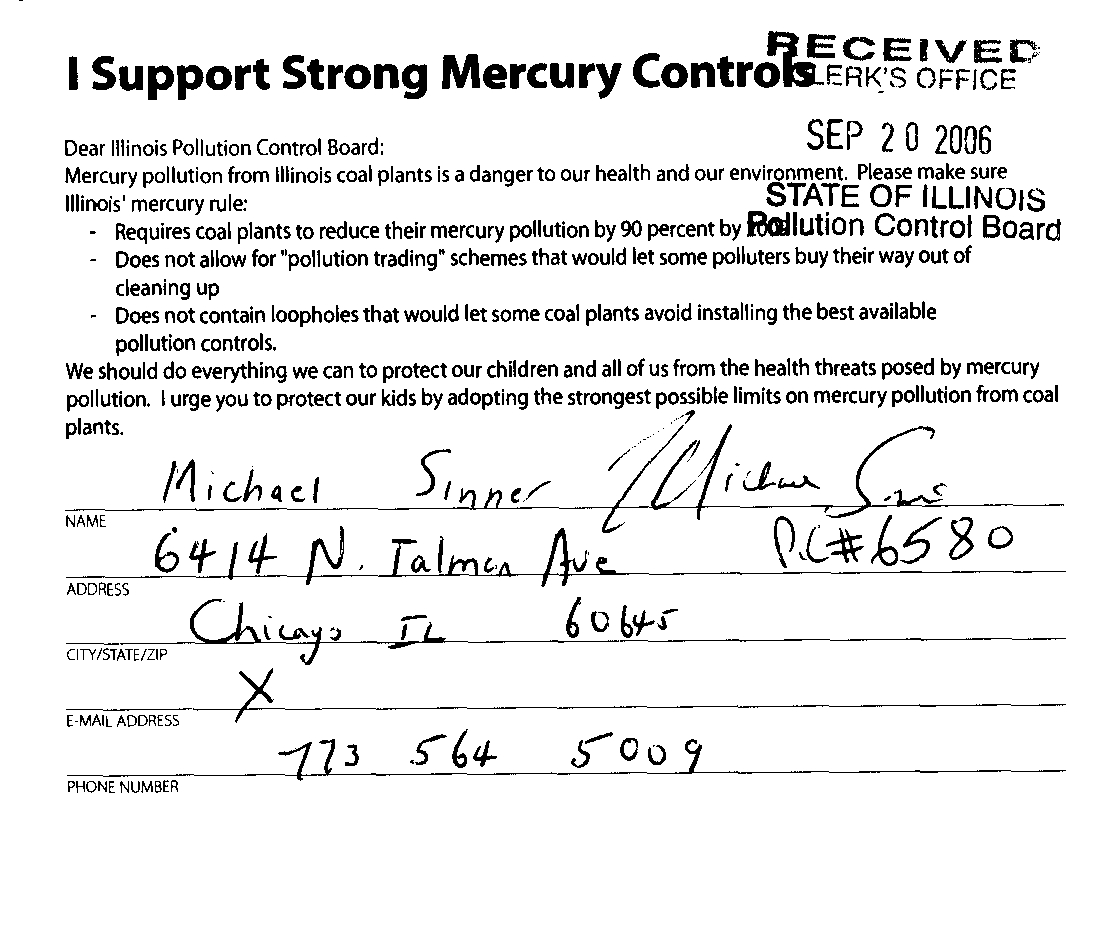 RECEIVED
I Support Strong Mercury Controls
CLERK'S OFFICE
SEP 20 2006
Dear Illinois Pollution Control Board:
Mercury pollution from Illinois coal plants is a danger to our health and our environment. Please make sure
STATE OF ILLINOIS
Illinois' mercury rule:
Pollution Control Board
- Requires coal plants to reduce their mercury pollution by 90 percent by
- Does not allow for "pollution trading" schemes that would let some polluters buy their way out of
cleaning up
- Does not contain loopholes that would let some coal plants avoid installing the best available
pollution controls.
We should do everything we can to protect our children and all of us from the health threats posed by mercury
pollution. I urge you to protect our kids by adopting the strongest possible limits on mercury pollution from coal
plants.
Michael Sinner
NAME
6414 N. Talman Ave P.C#6580
ADDRESS
Chicago IL 60645
CITY/STATE/ZIP
X
E-MAIL ADDRESS
773 564 5009
PHONE NUMBER